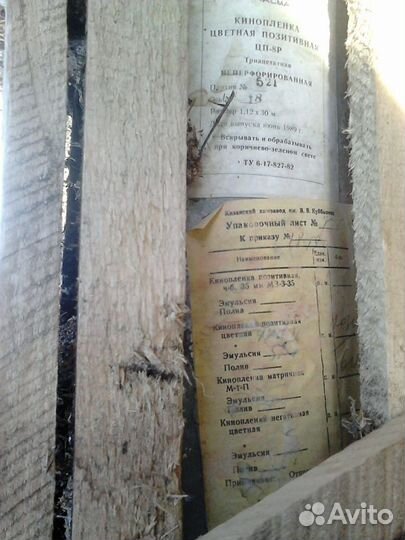 КИНОПЛЕНКА
ЦВЕТНАЯ ПОЗИТИВНАЯ
ЦП-8Р
Триацетатная
НЕПЕРФОРИРОВАННАЯ
№ 521
18
1,12 х 30 м
выпуска июнь 1989 г.
Вскрывать и обрабатывать
при коричнево-зеленом свете
ТУ 6-17-827-82
Казанский химзавод им. В. В. Куйбышева
Упаковочный лист №
К приказу №
Наименование
Кинопленка позитивная,
ч-б. 35 мм МЗ-3-35
Эмульсия
Полив
Кинопленка позитивная
цветная
Эмульсия
Полив
Кинопленка матричная
М-1-П
Эмульсия
Полив
Кинопленка негативная
цветная
Эмульсия
Полив
Avito